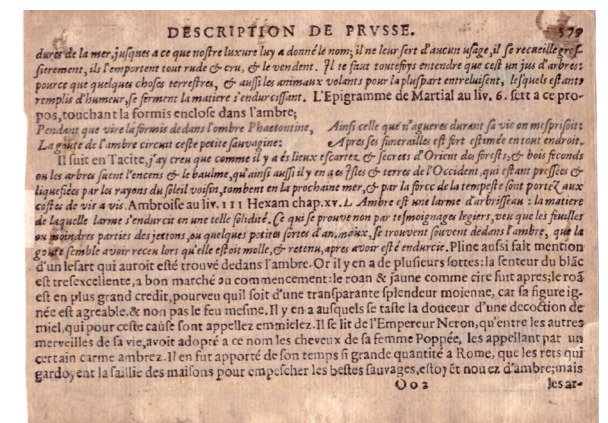 DESCRIPTION DE PRVSSE. 579
dures de la mer, jusques a ce que nostre luxure luy a donné le nom; il ne leur sert d'aucun usage, il se recueille gros-
sierement, ils l'emportent tout rude & cru, & le vendent. Il te faut toutefoys entendre que cest un jus d'arbres:
pource que quelques choses terrestres, & aussi les animaux volants pour la pluspart entreluisent, lesquels estants
remplis d'humeur, se ferment la matiere s'endurcissant. L'Epigramme de Martial au liv. 6. sert a ce pro-
pos, touchant la formis enclose dans l'ambre;
Pendant que vire la formis dedans l'ombre Phaetontine,
La goute de l'ambre circuit ceste petite sauvagine:
Ainsi celle que n'agueres durant sa vie on mesprisoit:
Apres ses funerailles est fort estimée en tout endroit.
Il suit en Tacite, j'ay creu que comme il y a és lieux escartez & secrets d'Orient des forests, & bois feconds
ou les arbres suent l'encens & le baulme, qu'ainsi aussi il y en a es Isles & terres de l'Occident, qui estant pressées &
liquefiées par les rayons du soleil voisin, tombent en la prochaine mer, & par la force de la tempeste sont portez aux
costes de vis a vis. Ambroise au liv. III Hexam chap. xv. L Ambre est une larme d'arbrisseau: la matiere
de laquelle larme s'endurcit en une telle solidité, Ce qui se prouve non par tesmoignages legiers, veu que les fueilles
ou moindres parties des jettons, ou quelques petites sortes d'animaux, se trouvent souvent dedans l'ambre, que la
goute semble avoir receu lors qu'elle estoit molle, & retenu, apres avoir esté endurcie. Pline aussi fait mention
d'un lesart qui auroit esté trouvé dedans l'ambre. Or il y en a de plusieurs sortes: la senteur du blãc
est tresexcellente, a bon marché ou commencement: le roan & jaune comme cire suit apres; le roã
est en plus grand credit, pourveu quil soit d'une transparante splendeur moienne, car sa figure ig-
née est agreable, & non pas le feu mesme. Il y en a ausquels se taste la douceur d'une decoction de
miel, qui pour ceste cause sont appellez emmielez. Il se lit de l'Empereur Neron, qu'entre les autres
merveilles de sa vie, avoit adopté a ce nom les cheveux de sa femme Poppée, les appellant par un
certain carme ambrez. Il en fut apporté de son temps si grande quantité a Rome, que les rets qui
gardoyent la saillie des maisons pour empescher les bestes sauvages, estoyẽt nouez d'ambre; mais
Oo 2 les ar-